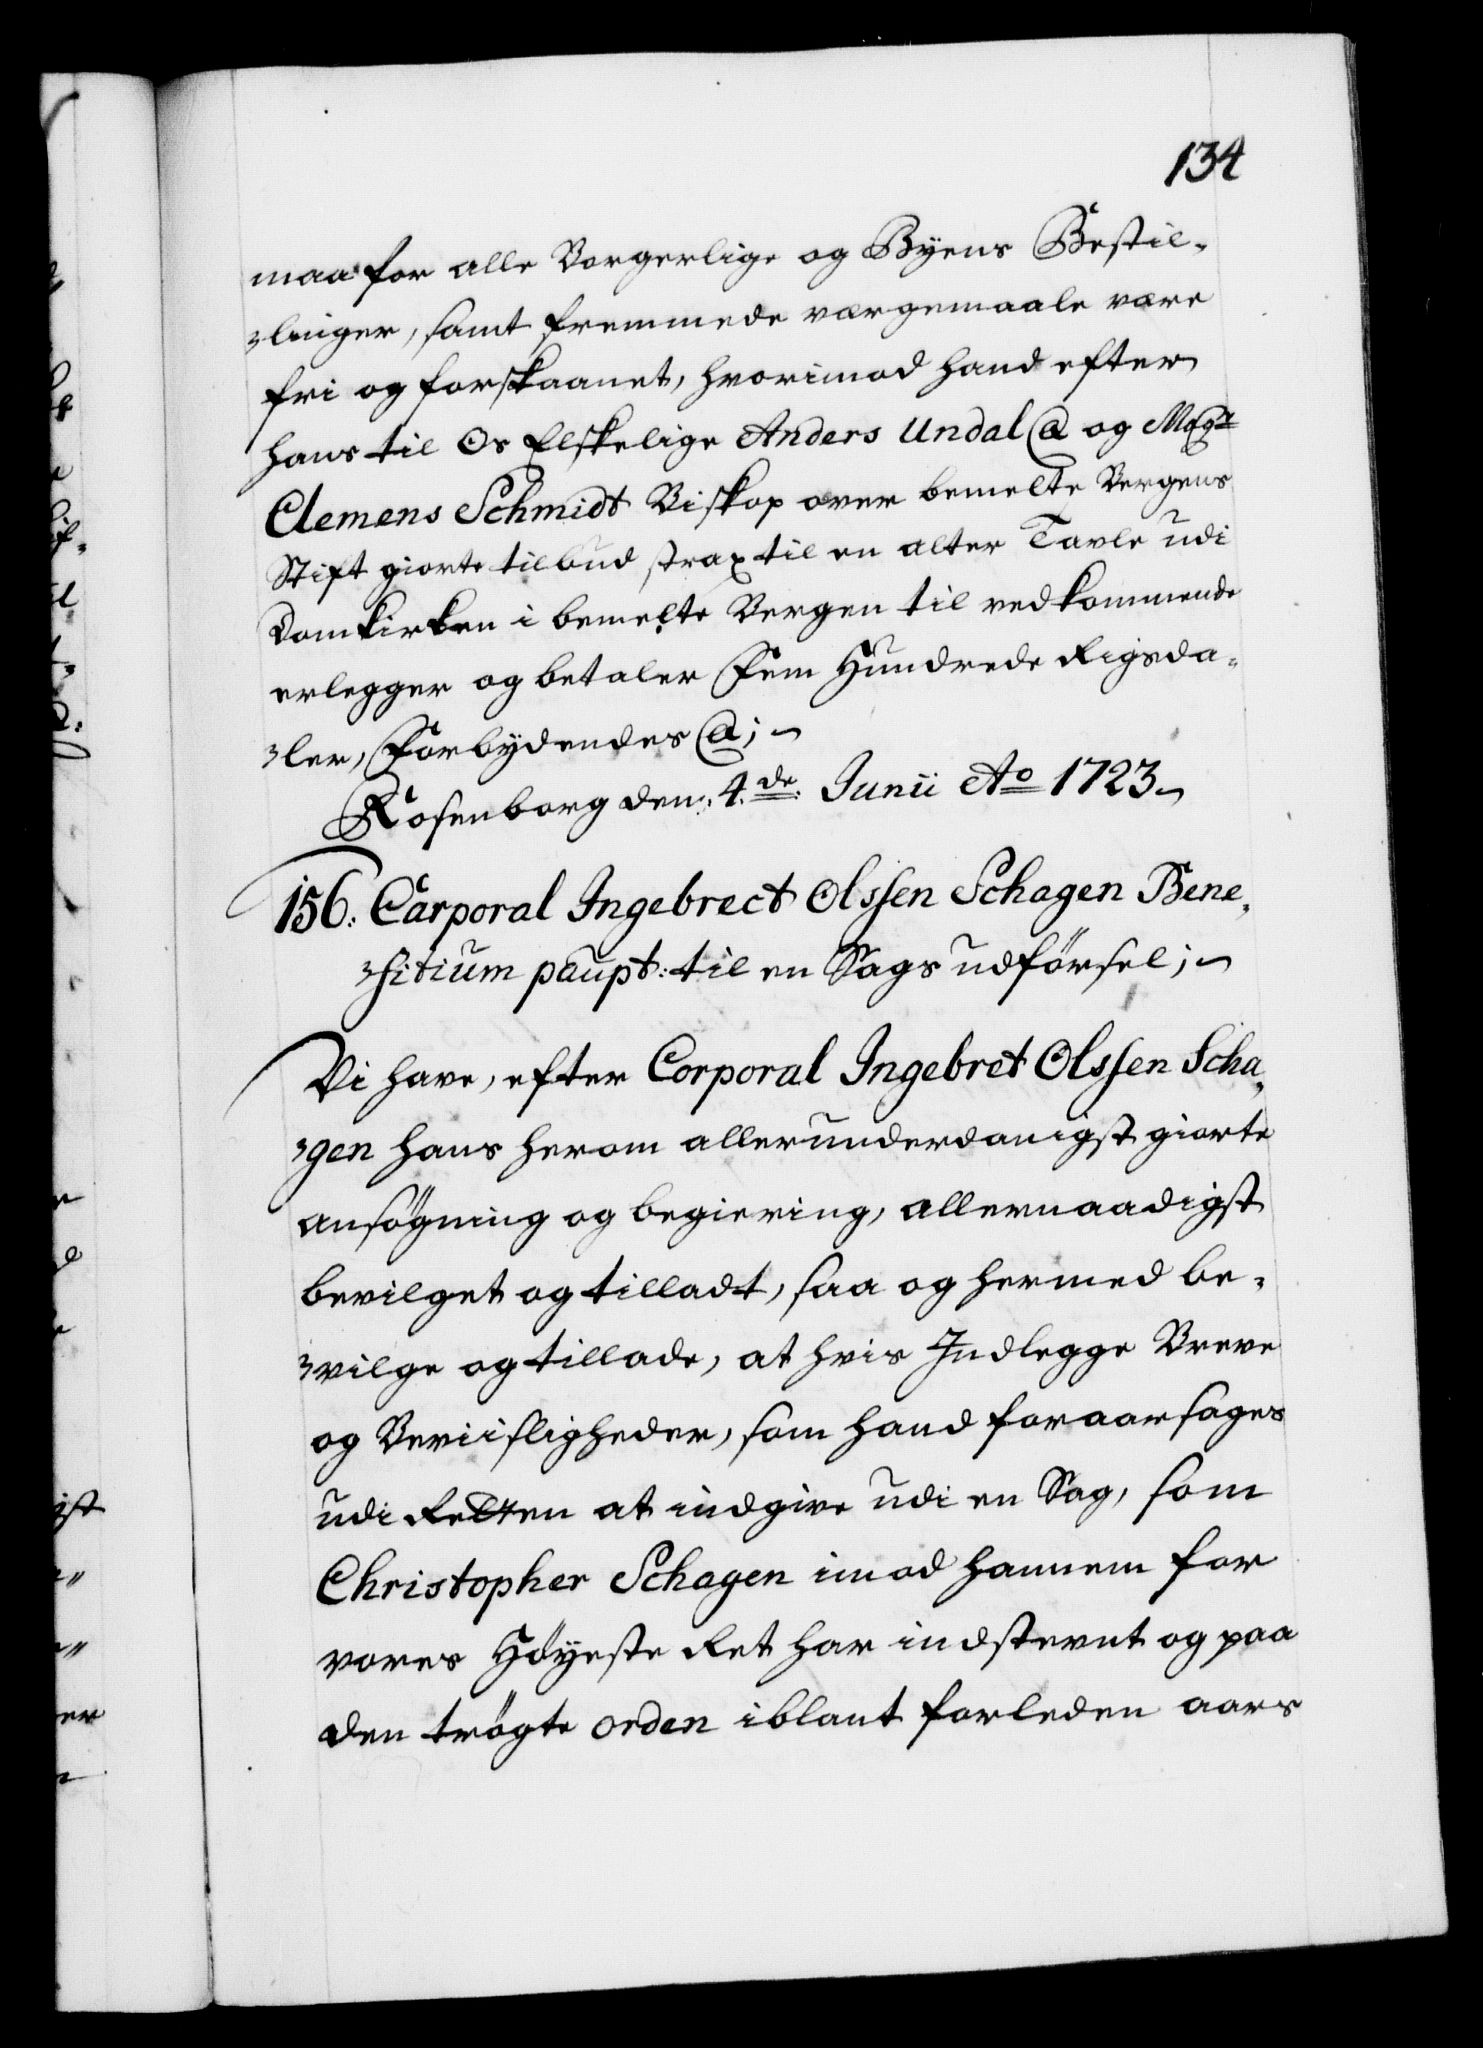 134
maa for alle Borgerlige og Byens Bestil-
-linger, samt fremmede værgemaale være
fri og forskaanet, hvorimod hand efter
hans til Os Elskelige Anders Undal @ og Mag:r
Clemens Schmidt Biskop over bemelte Bergens
Stift giorte tilbud strax til en alter Tavle udi
Domkirken i bemelte Bergen til vedkommende
erlegger og betaler Fem Hundrede Rigsda-
-ler, Forbydendes @; ~
Rosenborg den: 4.de Junii Ao 1723 ~
156: Carporal Ingebrect Olssen Schagen Bene-
-fitium paupt: til en Sags udførsel; ~
Vi have, efter Corporal Ingebret Olssen Scha-
-gen hans herom allerunderdanigst giorte
ansøgning og begiering, allernaadigst
bevilget og tilladt, saa og hermed be-
-vilge og tillade, at hvis Indlegge Breve
og Beviisligheder, som hand foraarsages
udi Retten at indgive udi en Sag, som
Christopher Schagen imod hannem for
vores Høyeste Ret har indstevnt og paa
den trøgte orden iblant forleden aars